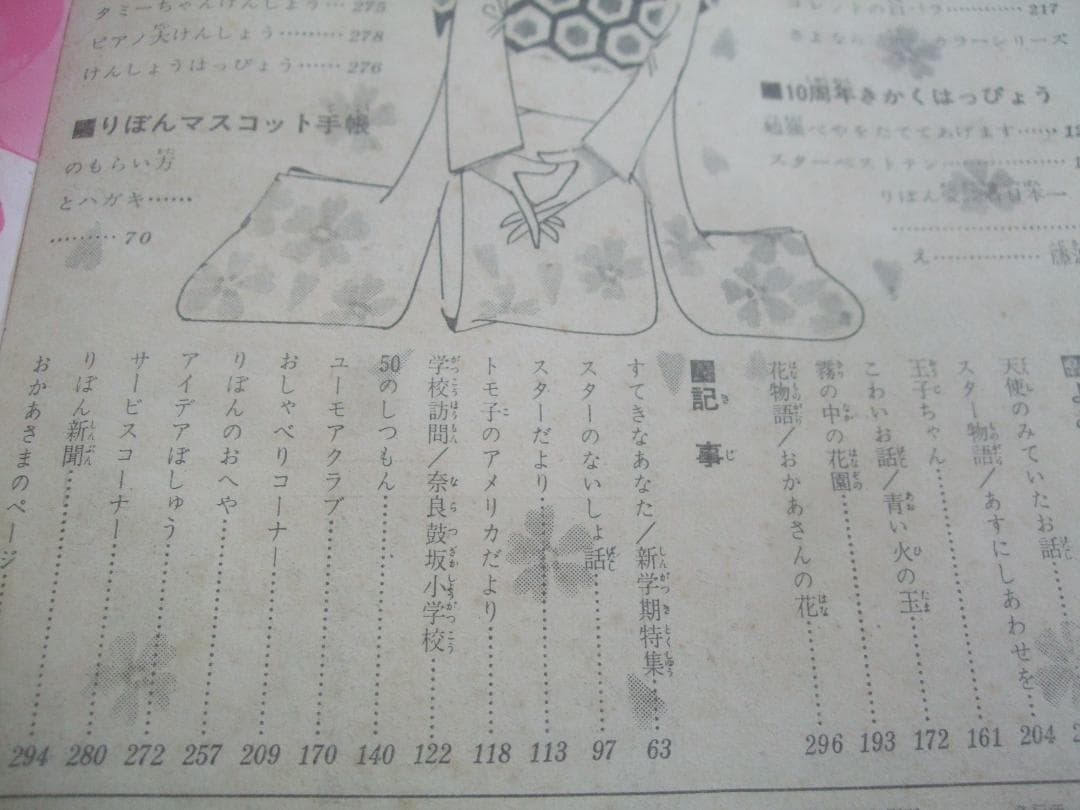 タミーちゃんけんしょう……275
ピアノ大けんしょう………278
けんしょうはっぴょう……276
りぼんマスコット手帳
のもらい方
とハガキ……
………70
217
さよなら カラーシリーズ
10周年きかくはっぴょう
べやをたててあげます……
スターベストテン………
りぼん
え………
天使のみていたお話………204
スター物語／あすにしあわせを…161
王子ちゃん………172
こわいお話／青い火の玉………193
霧の中の花園………
花物語／おかあさんの花………296
記事
すてきなあなた／新学期特集…63
スターのないしょ話………97
スターだより………113
トモ子のアメリカだより………118
学校訪問／奈良鼓坂小学校………122
50のしつもん………140
ユーモアクラブ………170
おしゃべりコーナー………209
りぼんのおへや………257
アイデアぼしゅう………272
サービスコーナー………280
りぼん新聞………294
おかあさまのページ